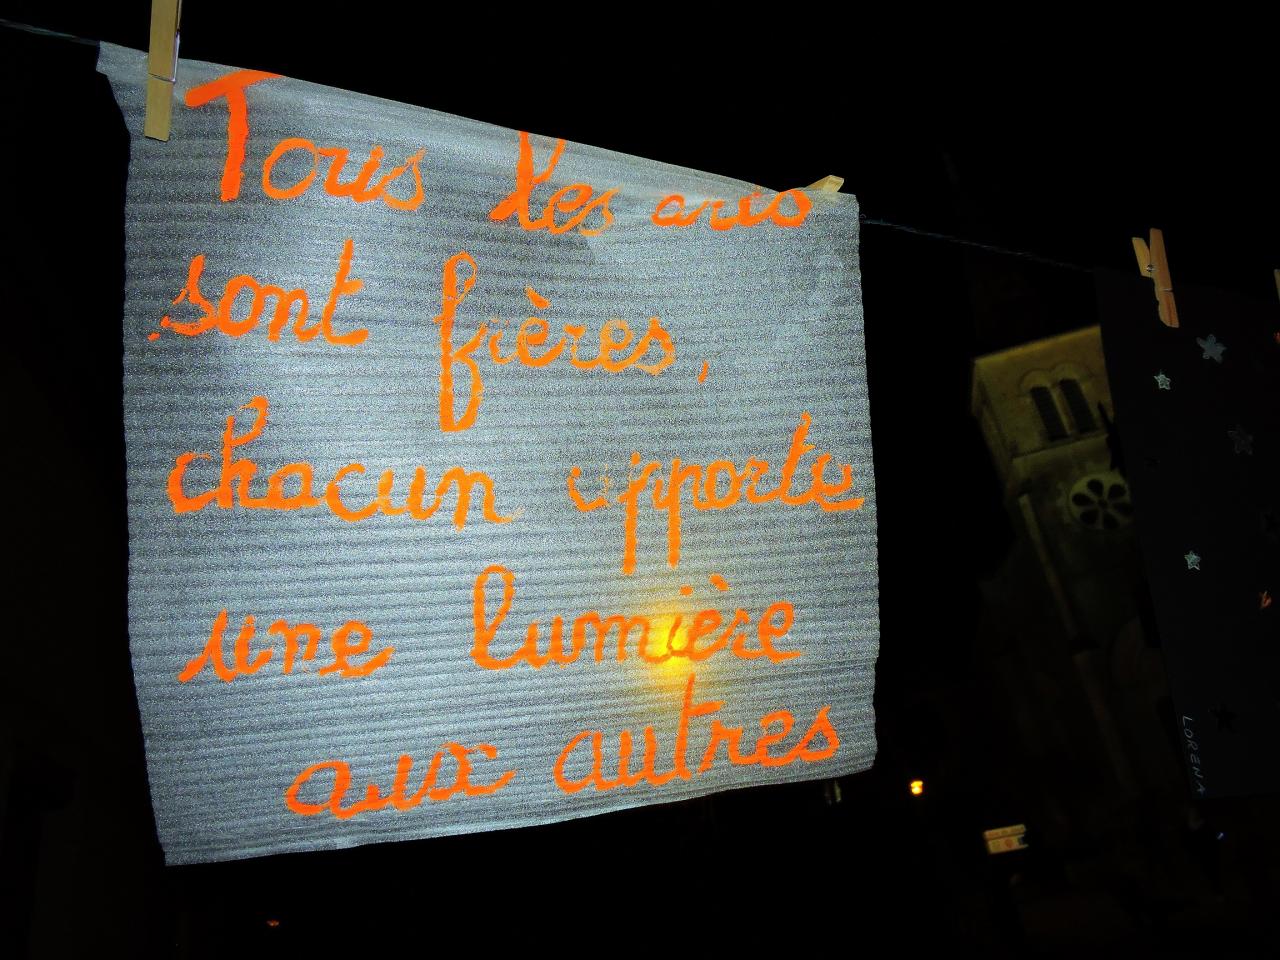 Tous les arts
sont frères,
chacun apporte
une lumière
aux autres
LORENA